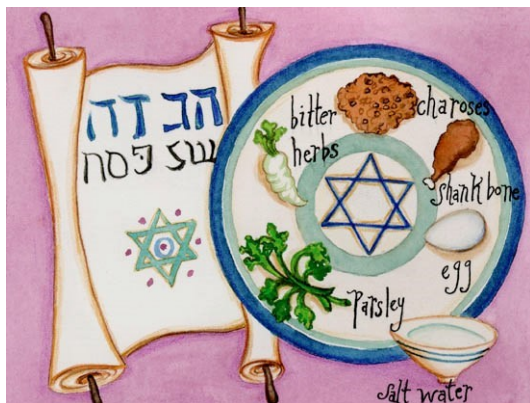 הג דה
של פסח
bitter
herbs
charoses
shank bone
egg
parsley
salt water